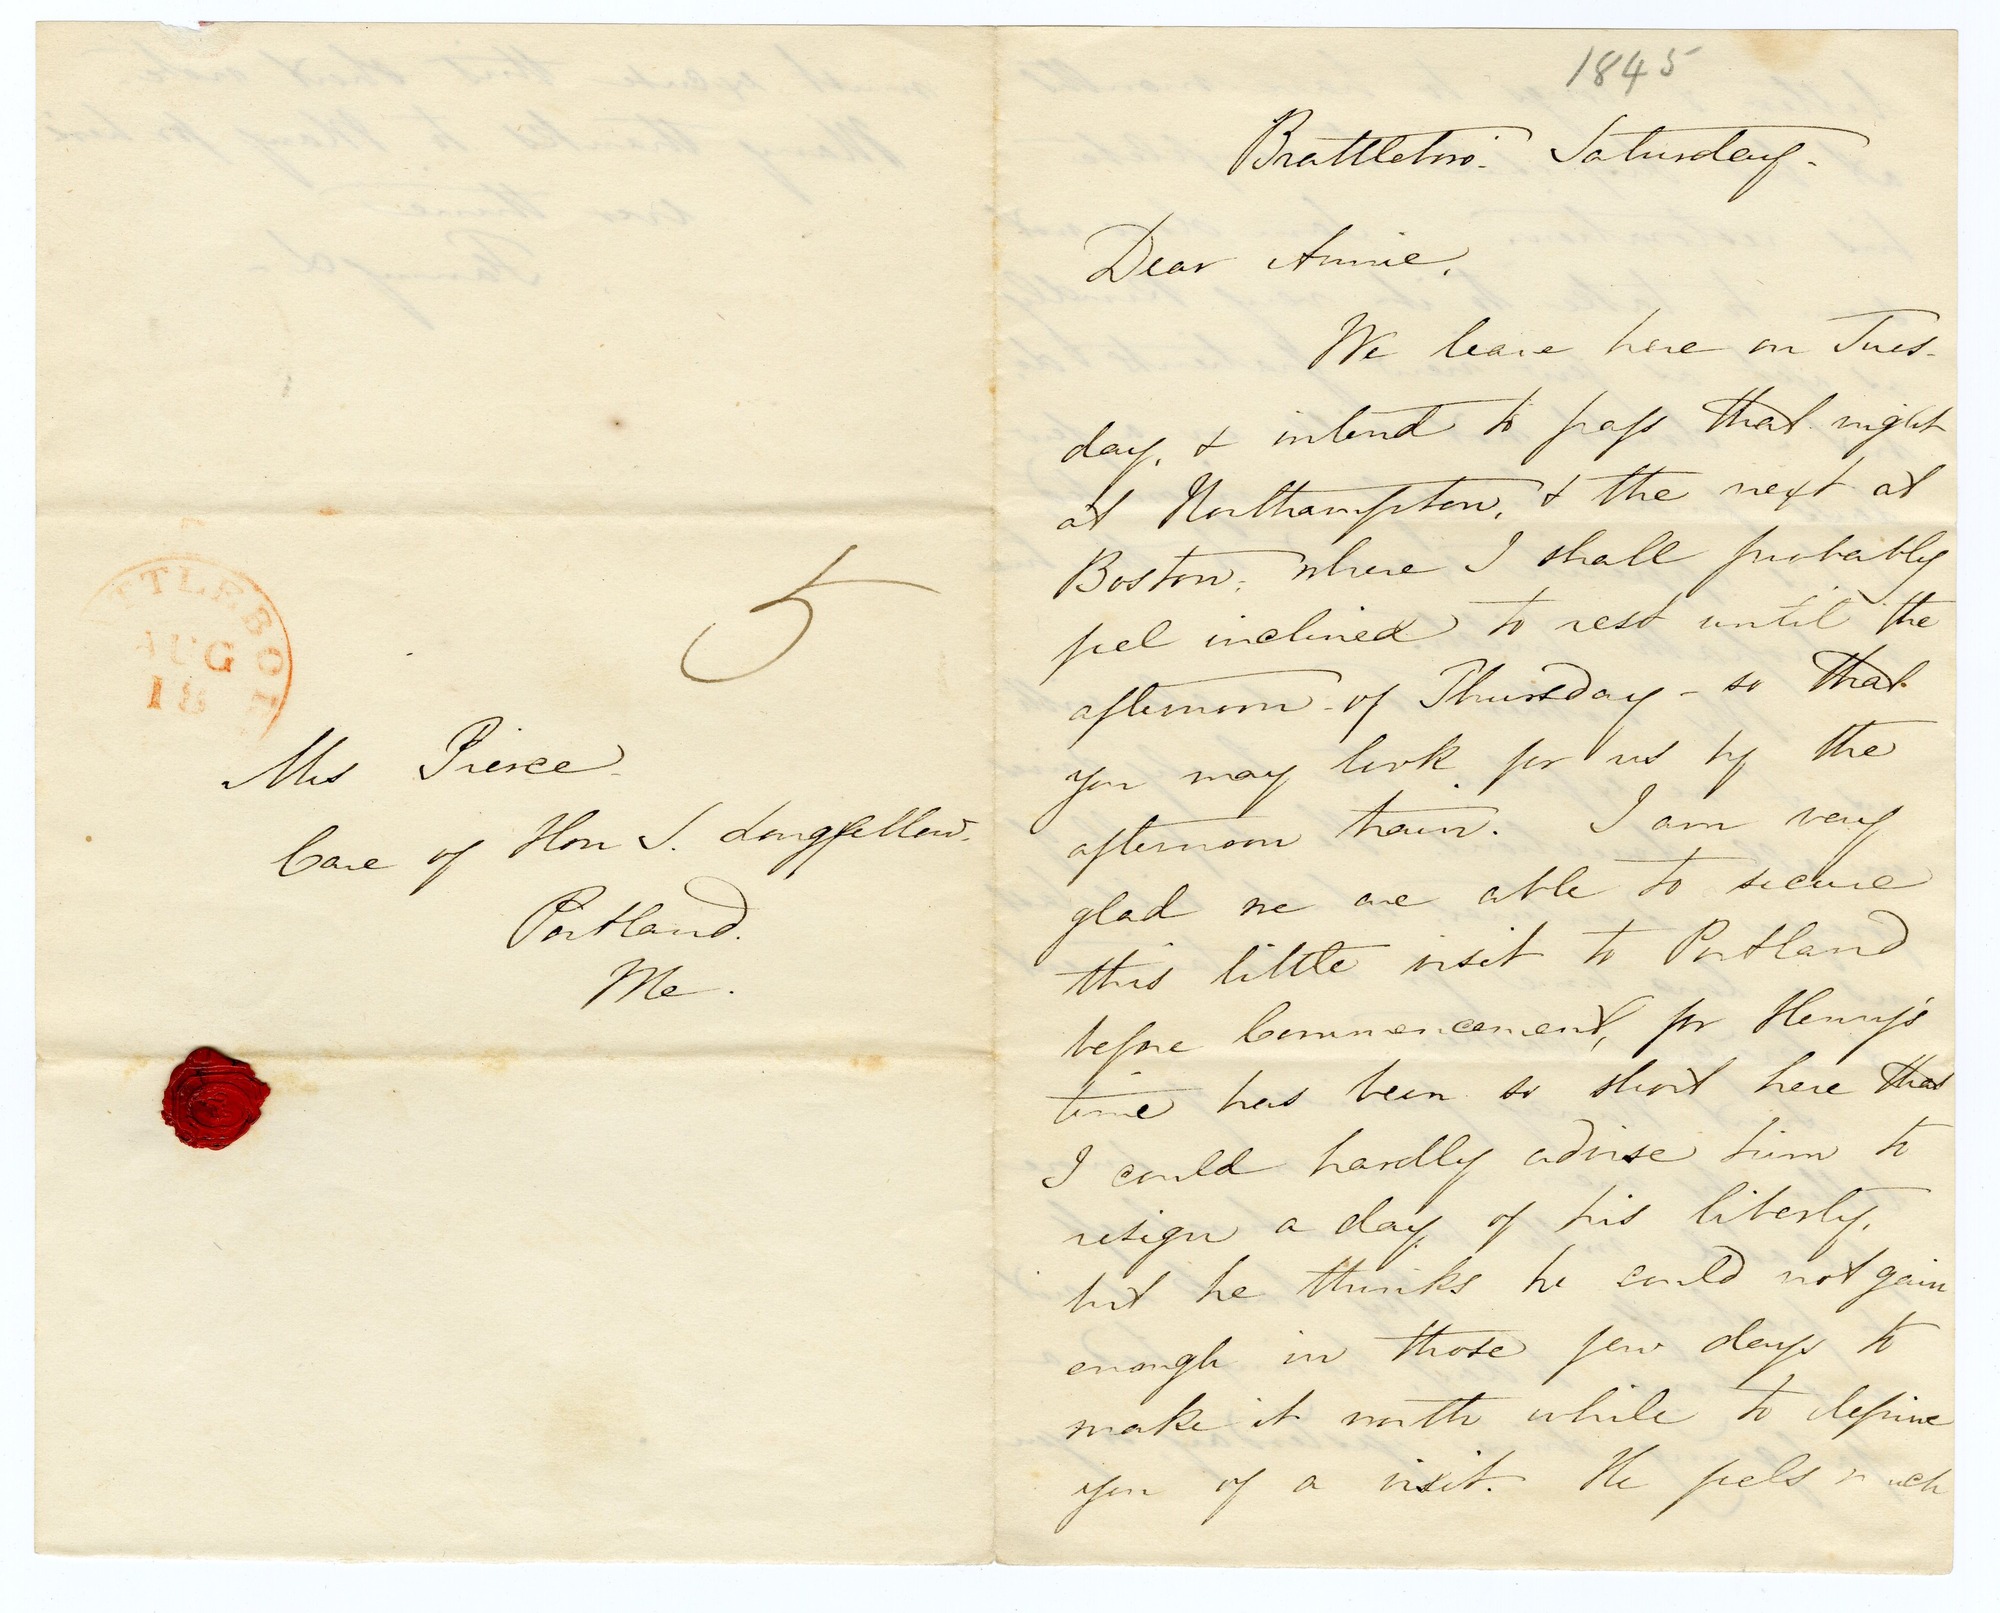 5
TTLEBORO
AUG
18
Mrs Pierce
Care of Hon S. Longfellow.
Portland.
Me.
1845
Brattleboro'. Saturday.
Dear Annie,
We leave here on Tues-
day, & intend to pass that night
at Northampton, & the next at
Boston, where I shall probably
feel inclined to rest until the
afternoon of Thursday - so that
you may look for us by the
afternoon train. I am very
glad we are able to secure
this little visit to Portland
before Commencement, for Henry's
time has been so short here that
I could hardly advise him to
resign a day of his liberty,
but he thinks he could not gain
enough in those few days to
make it worth while to deprive
you of a visit. He feels much